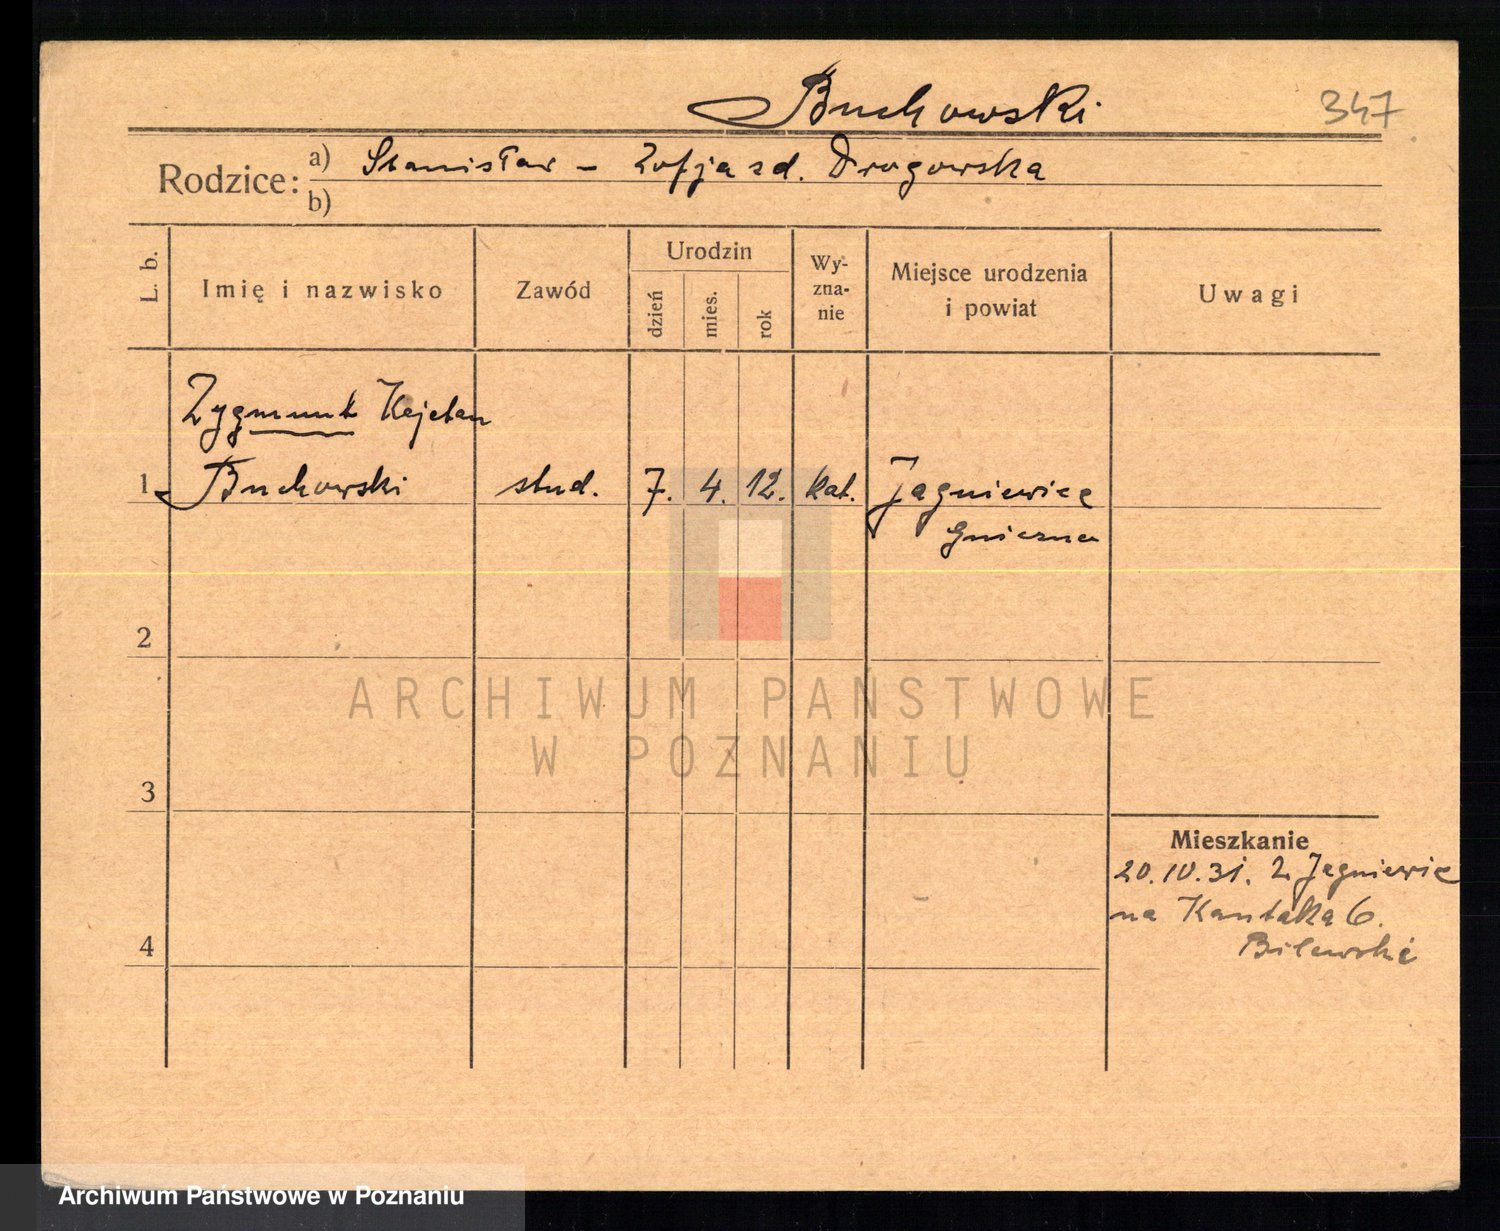 Buchowski 347
Rodzice: a) Stanisław – Zofja zd. Drogowska
b)
L. b. Imię i nazwisko Zawód Urodzin dzień mies. rok Wy-zna-nie Miejsce urodzenia i powiat Uwagi
Zygmunt Kajetan
1 Buchowski stud. 7. 4. 12. kat. Jagniewice
Gniezna
2
ARCHIWUM PAŃSTWOWE
W POZNANIU
3
Mieszkanie
20.IV.31. z Jagniewic
na Kantaka 6.
4 Bilewski
Archiwum Państwowe w Poznaniu